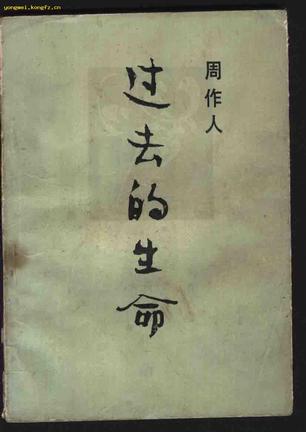 yongwei.kongfz.cn
周作人
过去的生命